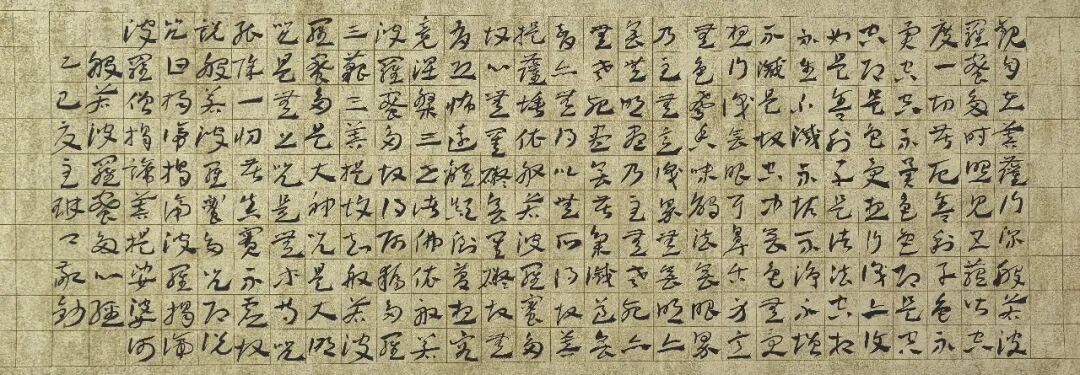 觀自在菩薩行深般若波
羅蜜多時照見五蘊皆空
度一切苦厄舍利子色不
異空空不異色色即是空
空即是色受想行識亦復
如是舍利子是諸法空相
不生不滅不垢不淨不增
不減是故空中無色無受
想行識無眼耳鼻舌身意
無色聲香味觸法無眼界
乃至無意識界無無明亦
無無明盡乃至無老死亦
無老死盡無苦集滅道無
智亦無得以無所得故菩
提薩埵依般若波羅蜜多
故心無罣礙無罣礙故無
有恐怖遠離顛倒夢想究
竟涅槃三世諸佛依般若
波羅蜜多故得阿耨多羅
三藐三菩提故知般若波
羅蜜多是大神咒是大明
咒是無上咒是無等等咒
能除一切苦真實不虛故
說般若波羅蜜多咒即說
咒曰揭諦揭諦波羅揭諦
波羅僧揭諦菩提娑婆訶
般若波羅蜜多心經
乙巳夏敬鈔